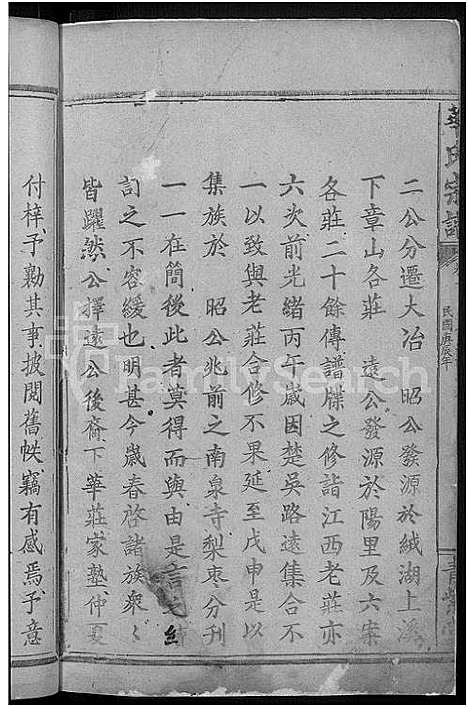 華氏宗譜
民國庚辰年
二公分遷大冶　昭公發源於絨湖上溪
下章山各莊　遠公發源於陽里及六案
各莊二十餘傳譜牒之修詣江西老莊亦
六次前光緒丙午歲因楚吳路遠集合不
一以致與老莊合修不果延至戊申是以
集族於　昭公兆前之南泉寺梨枣分刊
一一在簡後此者莫得而與由是言之
訂之不容緩也明甚今歲春啓諸族衆〻
皆躍然公擇遠公後裔下華莊家塾仲夏
付梓予勷其事披閱舊帙竊有感焉予意
FamilySearch